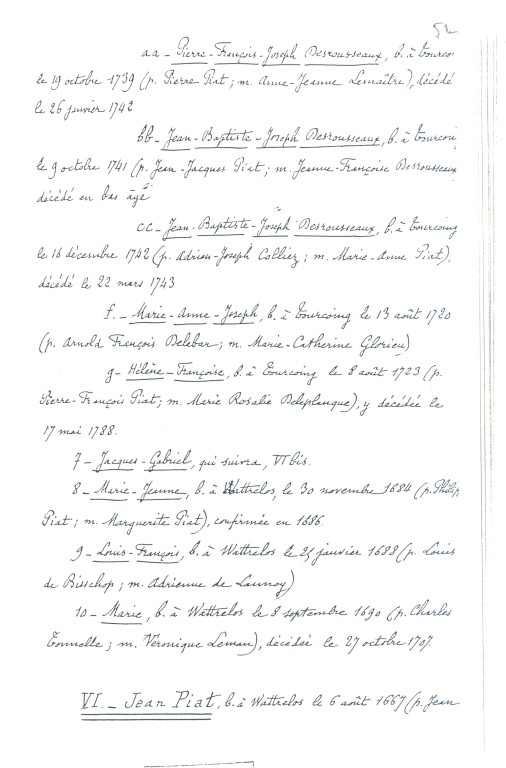 52
aa - Pierre-François-Joseph Desrousseaux, b. à Tourcoi
le 19 octobre 1739 (p. Pierre Piat ; m. Anne-Jeanne Lemaître), décédé
le 26 janvier 1742
bb - Jean-Baptiste-Joseph Desrousseaux, b. à Tourcoin
le 9 octobre 1741 (p. Jean-Jacques Piat ; m. Jeanne-Françoise Desrousseaux
décédé en bas âge
cc - Jean-Baptiste-Joseph Desrousseaux, b. à Tourcoing
le 16 décembre 1742 (p. Adrien-Joseph Colliez ; m. Marie-Anne Piat),
décédé le 22 mars 1743
f. - Marie-Anne-Joseph, b. à Tourcoing le 13 août 1720
(p. Arnold François Delebar ; m. Marie-Catherine Glorieu)
g - Hélène-Françoise, b. à Tourcoing le 8 août 1723 (p.
Pierre-François Piat ; m. Marie Rosalie Deleplanque), y décédée le
17 mai 1788.
7 - Jacques-Gabriel, qui suivra, VI bis.
8 - Marie-Jeanne, b. à Wattrelos, le 30 novembre 1684 (p. Philip
Piat ; m. Marguerite Piat), confirmée en 1686.
9 - Louis-François, b. à Wattrelos le 25 janvier 1688 (p. Louis
de Bisschop ; m. Adrienne de Launoy)
10 - Marie, b. à Wattrelos le 8 septembre 1690 (p. Charles
Tonnelle ; m. Véronique Leman), décédée le 27 octobre 1707.
VI. - Jean Piat, b. à Wattrelos le 6 août 1667 (p. Jean